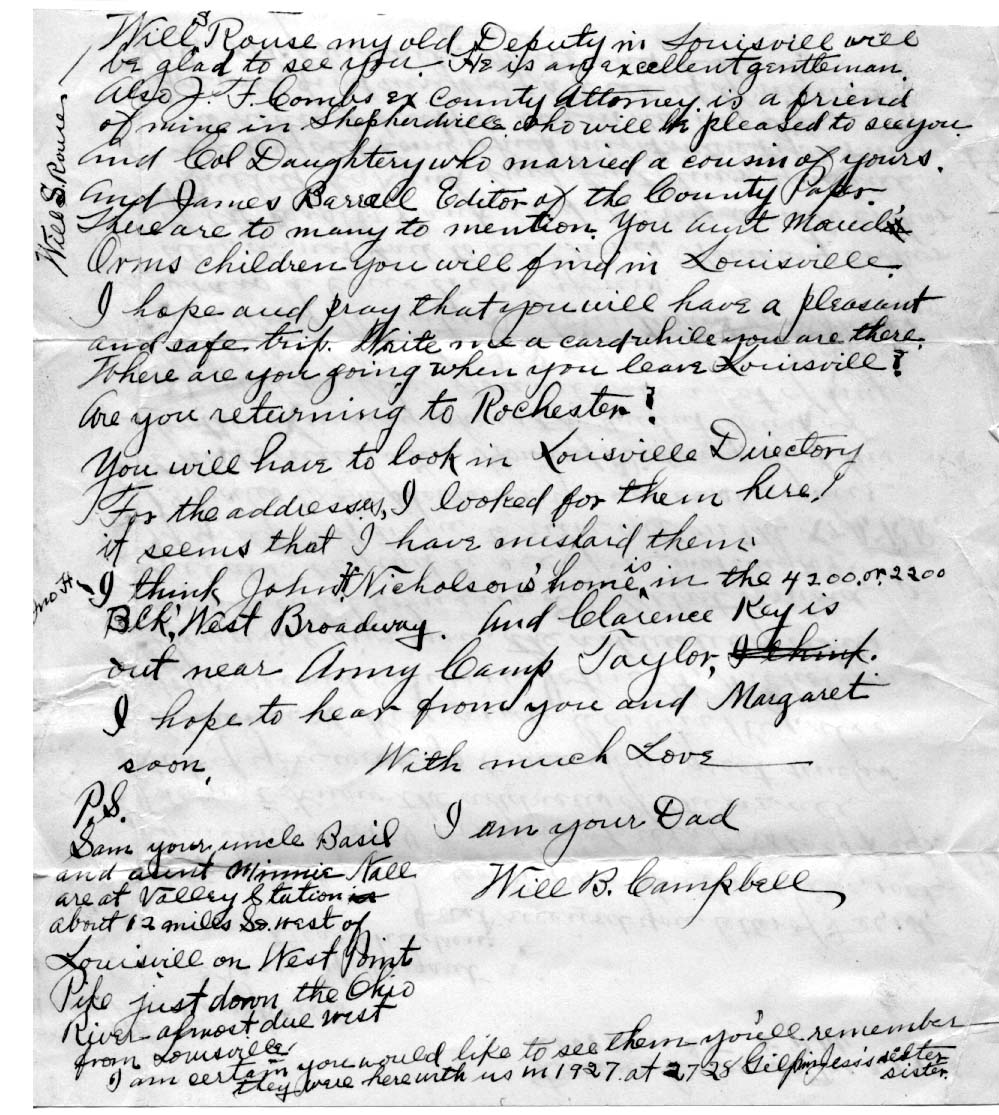 Will S Rouse my old Deputy in Louisvill will
be glad to see you. He is an excellent gentleman.
Also J. F. Combs ex County Attorney, is a friend
of mine in Shepherdville who will be pleased to see you.
And Col Daughtery who married a cousin of yours.
And James Barrall Editor of the County Paper.
There are to many to mention. You aunt Maud's
Orms children you will find in Louisville.
I hope and pray that you will have a pleasant
and safe trip. Write me a card while you are there.
Where are you going when you leave Louisvill?
Are you returning to Rochester?
You will have to look in Louisville Directory
For the addresses, I looked for them here,
it seems that I have mislaid them.
I think John H. Nicholson's home is in the 4200. or. 2200
Bck, West Broadway. And Clarence Key is
out near Army Camp Taylor, I think.
I hope to hear from you and Margaret
soon.
With much Love
I am your Dad
Will B. Campbell
P.S.
Sam your uncle Basil
and aunt Minnie Nall
are at Valley Station in
about 12 miles So. west of
Louisvill on West Point
Pike just down the Ohio
River almost due west
from Louisville.
I am certain you would like to see them you'll remember
they were here with us in 1927. at 2728 Gilpin Jess's sister
sister.
Will S. Rouse.
Jno H.